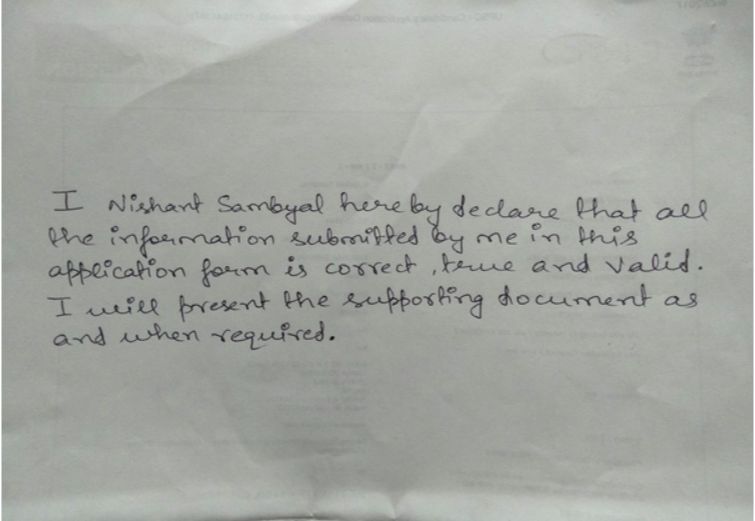 I Nishant Sambyal hereby declare that all
the information submitted by me in this
application form is correct, true and valid.
I will present the supporting document as
and when required.